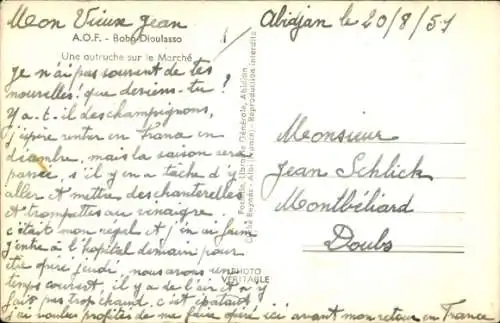 Mon Vieux Jean
Abidjan le 20/8/51
A.O.F. - Bobo-Dioulasso
Une autruche sur le Marché
Je n'ai pas souvent de tes
nouvelles! que deviens-tu?
Y a-t-il des champignons,
j'espère rentrer en France en
décembre, mais la saison sera
passée, s'il y en a tâche d'y
aller et mettre des chanterelles
et trompettes au vinaigre.
c'était mon régal et j'en ai faim
j'entre à l'hôpital demain pour
être opéré jeudi, nous avons un
temps couvert, il y a de l'air et n'y
fais pas trop chaud. c'est épatant
j'ai voulu profiter de me faire opéré ici avant mon retour en France
Monsieur
Jean Schlick
Montbéliard
Doubs
Librairie Générale, Abidjan
Cliché Albi (France). Reproduction interdite
PHOTO
VÉRITABLE